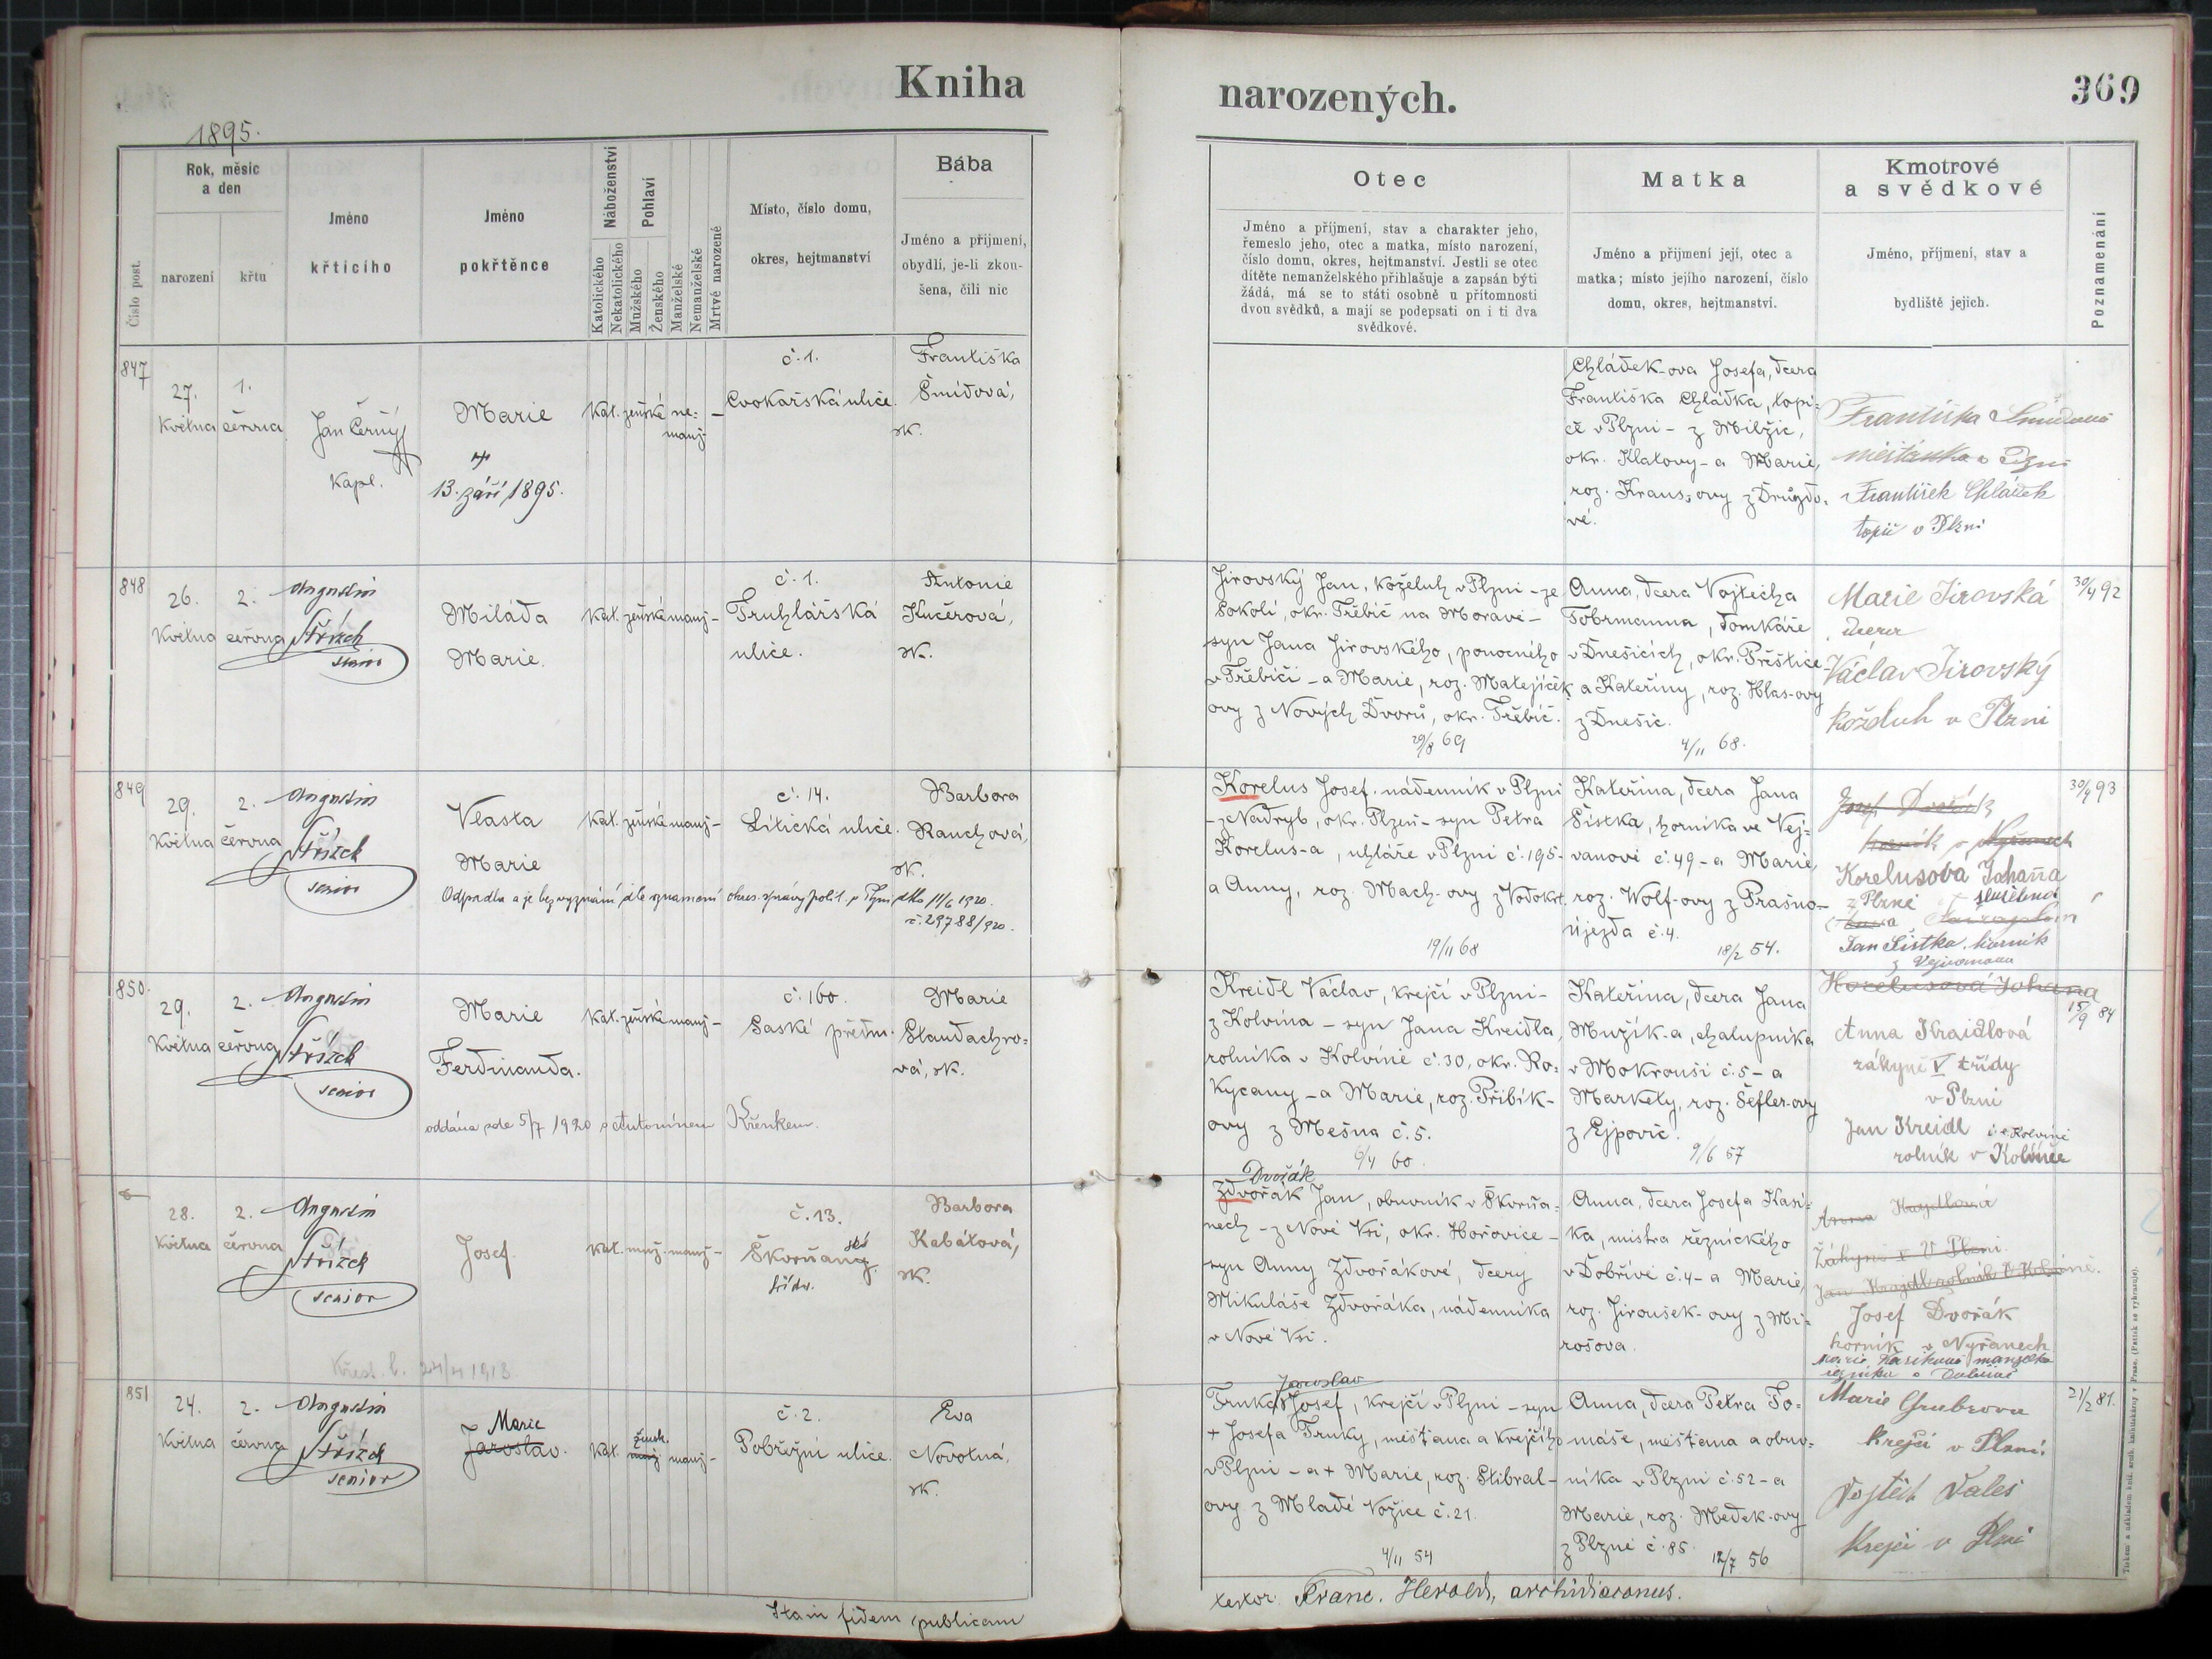 Kniha
narozených.
369
1895.
Číslo post.
Rok, měsíc
a den
narození
křtu
Jméno
křtícího
Jméno
pokřtěnce
Náboženství
Katolického
Nekatolického
Pohlaví
Mužského
Ženského
Manželské
Nemanželské
Mrtvě narozené
Místo, číslo domu,
okres, hejtmanství
Bába
Jméno a přijmení,
obydlí, je-li zkou-
šena, čili nic
Otec
Jméno a příjmení, stav a charakter jeho,
řemeslo jeho, otec a matka, místo narození,
číslo domu, okres, hejtmanství. Jestli se otec
dítěte nemanželského přihlašuje a zapsán býti
žádá, má se to státi osobně u přítomnosti
dvou svědků, a mají se podepsati on i ti dva
svědkové.
Matka
Jméno a přijmení její, otec a
matka; místo jejího narození, číslo
domu, okres, hejtmanství.
Kmotrové
a svědkové
Jméno, příjmení, stav a
bydliště jejich.
Poznamenání
847
27.
Května
1.
června
Jan Černý
kapl.
Marie
13. září 1895.
kat. ženské ne-
manž-
č. 1.
Cvokařská ulice.
Františka
Šmídová,
zk.
Chládek-ova Josefa, dcera
Františka Chládka, topi-
če v Plzni - z Milžic,
okr. Klatovy - a Marie,
roz. Kraus-ovy z Družďo-
vé.
Františka Šmídová
měšťanka v Plzni
František Chládek
topič v Plzni
848
26.
Května
2.
června
Augustin
Střízek
senior
Milada
Marie.
kat. ženské manž-
č. 1.
Truhlářská
ulice.
Antonie
Kučerová,
zk.
Jirovský Jan, koželuh v Plzni - ze
Sokolí, okr. Třebíč na Moravě -
syn Jana Jirovského, ponocného
v Třebíči - a Marie, roz. Matejíček
ovy z Nových Dvorů, okr. Třebíč.
29/8 69
Anna, dcera Vojtěcha
Tobrmanna, domkáře
v Dnešicích, okr. Přeštice
a Kateřiny, roz. Hlas-ovy
z Dnešic.
4/11 68.
Marie Jirovská
dcera
Václav Jirovský
koželuh v Plzni
30/4 92
849
29.
Května
2.
června
Augustin
Střízek
senior
Vlasta
Marie
kat. ženské manž-
č. 14.
Litická ulice.
Barbora
Rauchová,
zk.
Odpadla a je bez vyznání dle oznámení okres. správy polit. v Plzni dto 11/6 1920.
č. 29788/920.
Korelus Josef, nádenník v Plzni
- z Nadryb, okr. Plzeň - syn Petra
Korelus-a, uhláře v Plzni č. 195 -
a Anny, roz. Mach-ovy z Vodokrt.
19/11 68
Kateřina, dcera Jana
Šistka, horníka ve Vej-
vanově č. 49 - a Marie,
roz. Wolf-ovy z Prašno-
újezda č. 4.
18/2 54.
Josef Dvořák
horník v Nyřanech
Korelusova Johana
z Plzně služebná
Jan Šistka, horník
z Vejvanova
30/4 93
850.
29.
Května
2.
června
Augustin
Střízek
senior
Marie
Ferdinanda.
kat. ženské manž-
č. 160.
Saské předm.
Marie
Standachro-
vá, zk.
oddána zde 5/7 1920 s Antonínem Křenkem.
Kreidl Václav, krejčí v Plzni -
z Kolvína - syn Jana Kreidla,
rolníka v Kolvíně č. 30, okr. Ro-
kycany - a Marie, roz. Přibík-
ovy z Mešna č. 5.
6/4 60.
Kateřina, dcera Jana
Mužík-a, chalupníka
v Mokrouši č. 5 - a
Markety, roz. Šefler-ovy
z Ejpovic.
9/6 57
Korelusová Johana
Anna Kraidlová
žákyně V třídy
v Plzni
Jan Kreidl
rolník v Kolvíně
15/9 84
28.
Května
2.
června
Augustin
Střízek
senior
Josef.
kat. muž. manž-
č. 13.
Škvrňanská
třída.
Barbora
Kabátová,
zk.
Křest. l. 24/4 1913.
Dvořák
Zdvořák Jan, obuvník v Škvrňa-
nech - z Nové Vsi, okr. Hořovice -
syn Anny Zdvořákové, dcery
Mikuláše Zdvořáka, nádenníka
v Nové Vsi.
Anna, dcera Josefa Kasí-
ka, mistra řeznického
v Dobřívě č. 4 - a Marie,
roz. Jiroušek-ovy z Mi-
rošova.
Anna Kraydlová
žákyně v Plzni.
Josef Dvořák
horník v Nyřanech
Marie Kasíková manželka
řezníka v Dobřívě
851
24.
Května
2.
června
Augustin
Střízek
senior
Marie
Jaroslav.
kat. žensk. manž-
č. 2.
Pobřežní ulice.
Eva
Novotná,
zk.
Jaroslav
Trnka Josef, krejčí v Plzni - syn
+ Josefa Trnky, měšťana a krejčího
v Plzni - a + Marie, roz. Stibral-
ovy z Mladé Vožice č. 21.
4/11 54
Anna, dcera Petra To-
máše, měšťana a obuv-
níka v Plzni č. 52 - a
Marie, roz. Medek-ovy
z Plzně č. 85.
12/7 56
Marie Grubrova
krejčí v Plzni.
Vojtěch Valeš
krejčí v Plzni
21/2 81.
Stam fidem publicam
testor. Franc. Herold, archidiaconus.